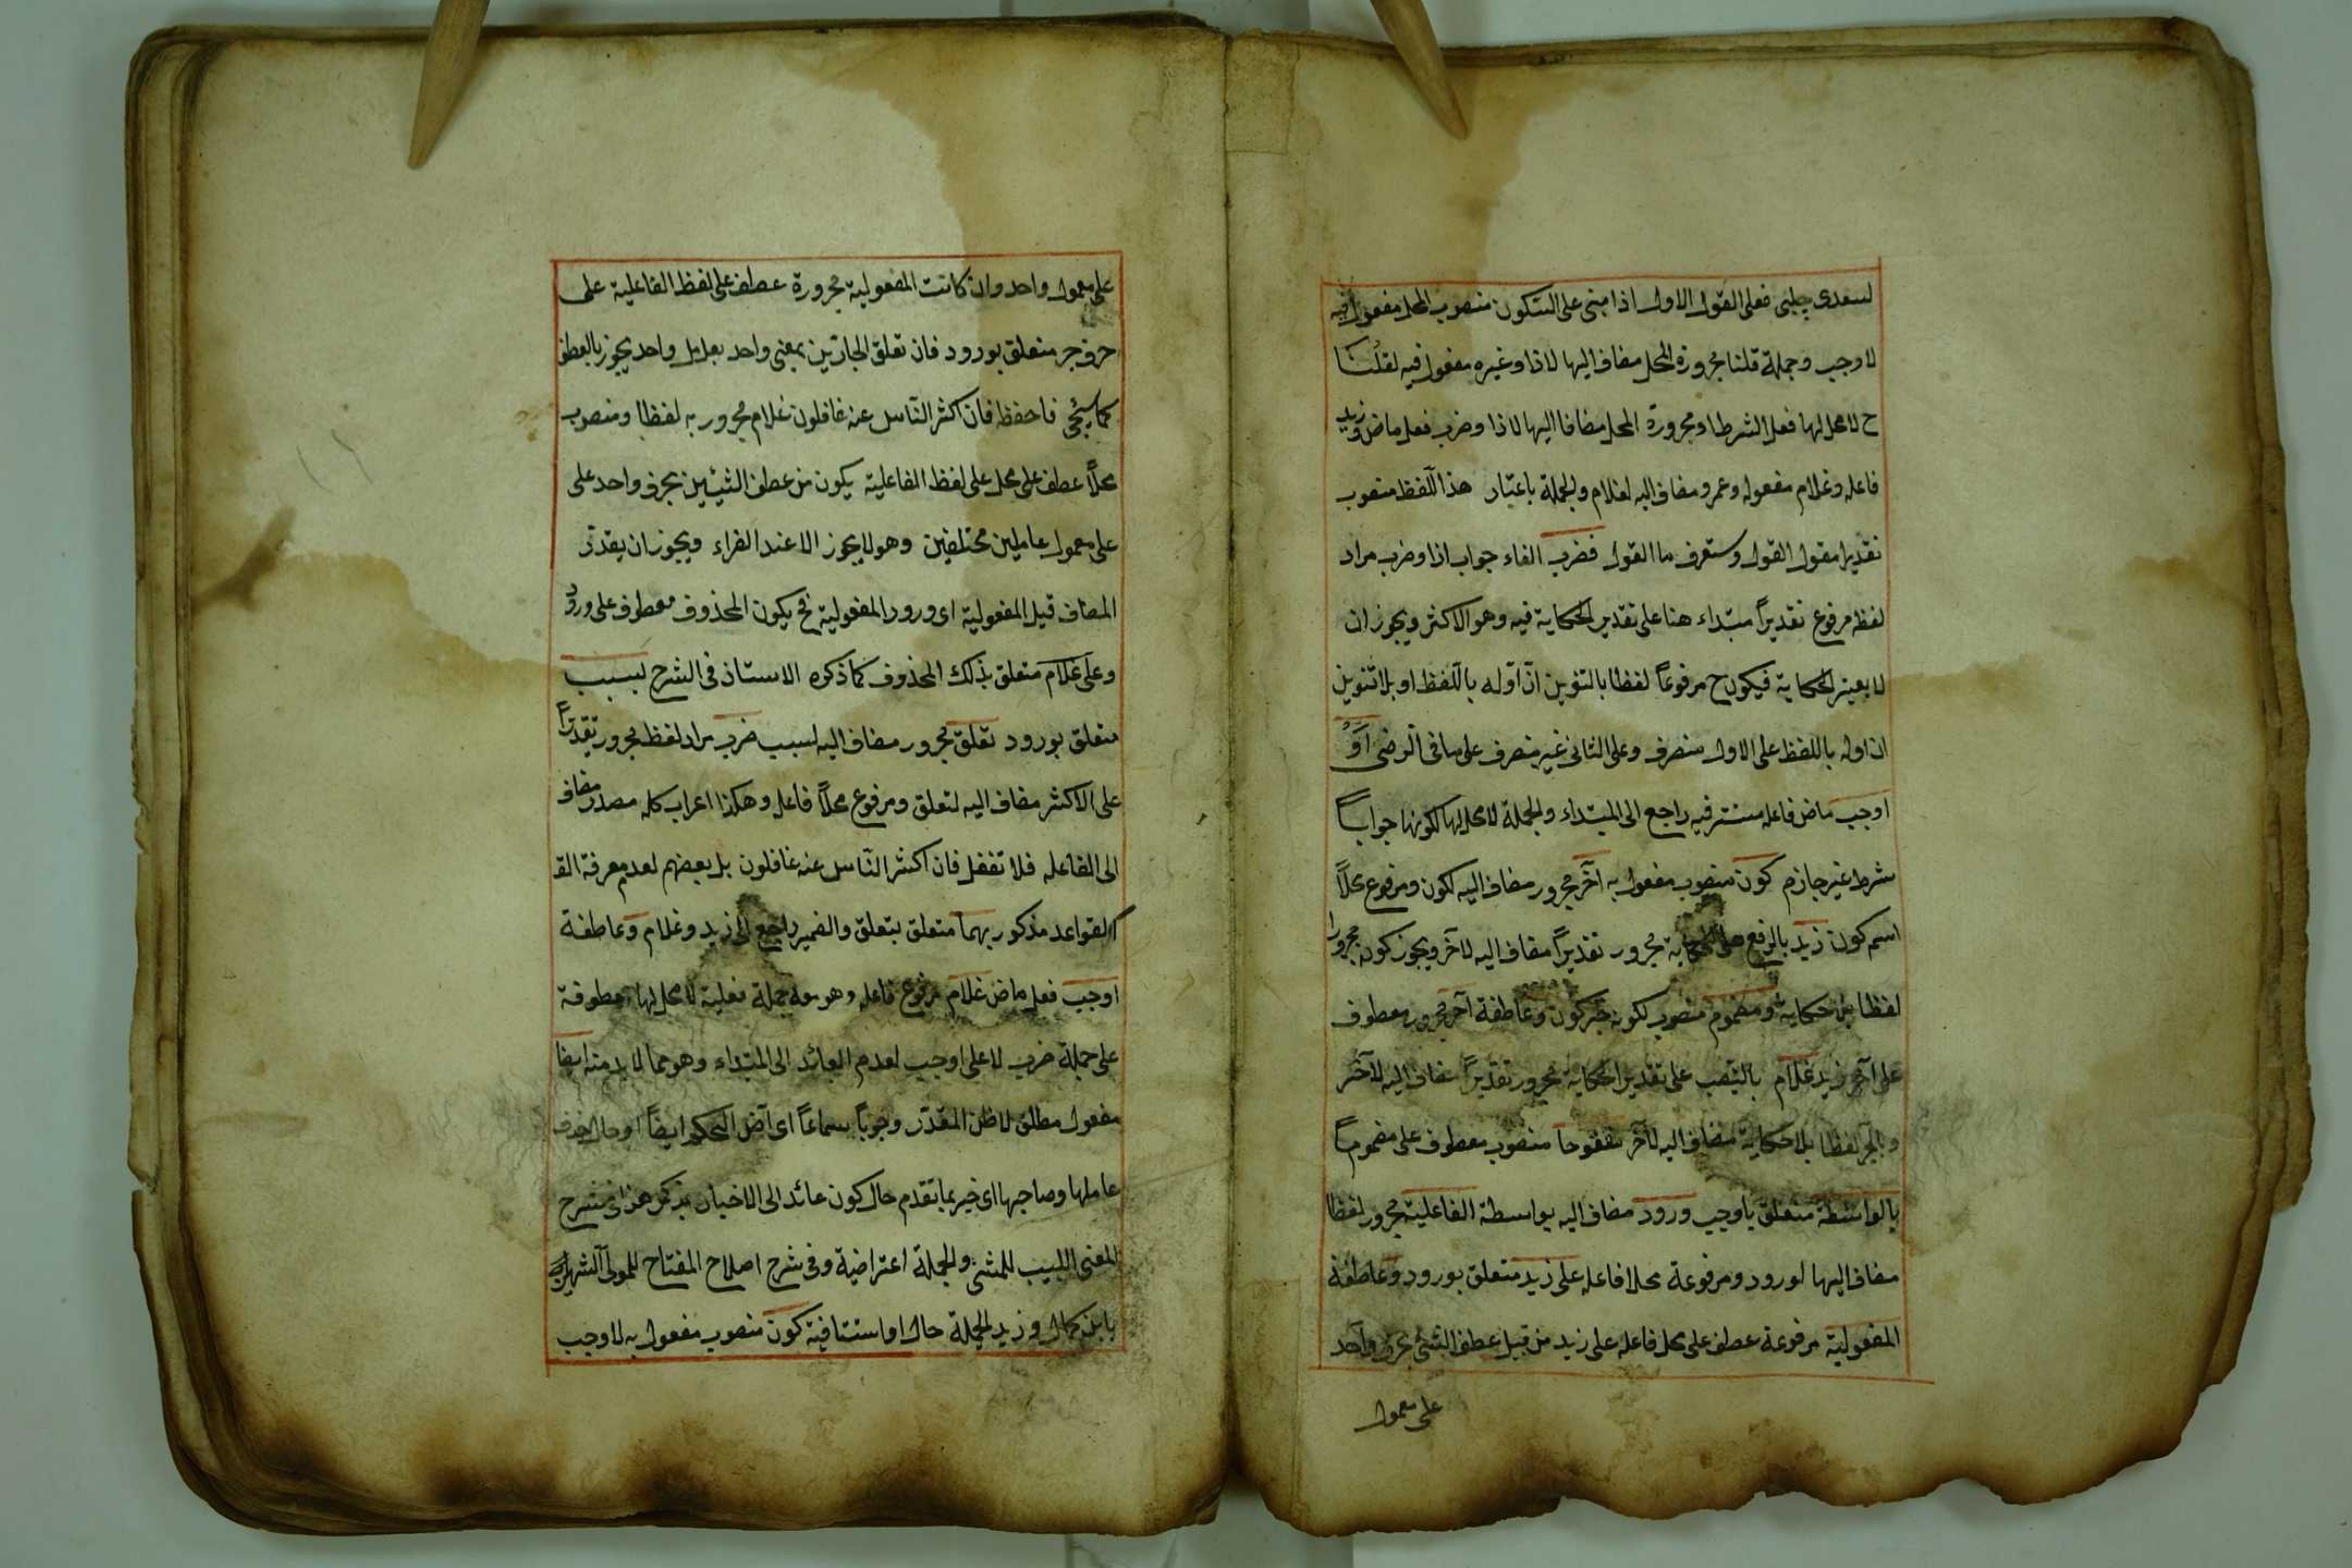 لسعدى چلبى فعلى القول الاول اذا مبنى على السكون منصوب المحل مفعول فيه
لاوجب وجملة قلنا مجرورة المحل مضاف اليها لاذا وغيره مفعول فيه لقلنا
ح لا محل لها فعل الشرط او مجرورة المحل مضافا اليها لاذا وضرب فعل ماض وزيد
فاعله وغلام مفعوله وعمرو مضاف اليه لغلام والجملة باعتبار هذا اللفظ منصوب
تقديرا مقول القول وستعرف ما القول فضرب الفاء جواب اذا وضرب مراد
لفظه مرفوع تقديراً مبتداء هنا على تقدير الحكاية فيه وهو الاكثر ويجوز ان
لا يعتبر الحكاية فيكون ح مرفوعاً لفظا بالتنوين ان اوّله باللفظ او بلا تنوين
ان اوله باللفظ على الاول منصرف وعلى الثانى غير منصرف على ما فى الرضى
اوجب ماض فاعله مستتر فيه راجع الى المبتداء والجملة لا محل لها لكونها جواباً
شرط غير جازم كون منصوب مفعول به آخر مجرور مضاف اليه لكون ومرفوع محلاً
اسم كون زيد بالرفع على الحكاية مجرور تقديراً مضاف اليه لآخر ويجوز كونه مجرورا
لفظا بلا حكاية ومضموم منصوب لكونه خبر كون وعاطفة آخر مجرور معطوف
على آخر زيد غلام بالنصب على تقدير الحكاية مجرور تقديراً مضاف اليه لآخر
وبالجر لفظا بلا حكاية مضاف اليه لآخر مفتوحا منصوب معطوف على مضموماً
بالواسطة متعلق باوجب ورود مضاف اليه بواسطة الفاعلية مجرور لفظا
مضاف اليها لورود ومرفوعة محلا فاعله على زيد متعلق بورود وعاطفة
المفعولية مرفوعة عطف على محل فاعله على زيد من قبيل عطف الشئ بحرف واحد
على معمول
على معمول واحد وان كانت المفعولية مجرورة عطف على لفظ الفاعلية على
حرف جر متعلق بورود فان تعلق الجارّين بمعنى واحد بعامل واحد يجوز بالعطف
كما سيجئ فاحفظ فان اكثر الناس عنه غافلون غلام مجرور به لفظا ومنصوب
محلاً عطف على محل على لفظ الفاعلية يكون من عطف الشيئين بحرف واحد على
على معمول عاملين مختلفين وهو لا يجوز الا عند الفراء ويجوز ان يقدّر
المضاف قبل المفعولية اى ورود المفعولية فح يكون المحذوف معطوف على ورود
وعلى غلام متعلق بذلك المحذوف كما ذكره الاستاذ فى الشرح لسبب
متعلق بورود تعلق مجرور مضاف اليه لسبب ضرب مراد لفظه مجرور تقديراً
على الاكثر مضاف اليه لتعلق ومرفوع محلاً فاعله وهكذا اعراب كل مصدر مضاف
الى الفاعله فلا تغفل فان اكثر الناس عنه غافلون بل بعضهم لعدم معرفة القـ
القواعد مذكور بهما متعلق بتعلق والضمير راجع الى زيد وغلام وعاطفة
اوجب فعل ماض غلام مرفوع فاعله وهو معه جملة فعلية لا محل لها معطوفة
على جملة ضرب لا على اوجب لعدم العائد الى المبتداء وهو مما لا بد منه ايضا
مفعول مطلق لاظن المقدّر وجوباً سماعاً اى آض التحكم ايضاً او حال حذف
عاملها وصاحبها اى خبر بما تقدم حال كون عائد الى الاخبار بذكر هذا فى شرح
المغنى اللبيب للمثنى والجملة اعتراضية وفى شرح اصلاح المفتاح للمولى الشهير
بابن كمال وزيد الجملة حال او استئنافية كون منصوب مفعول به لاوجب